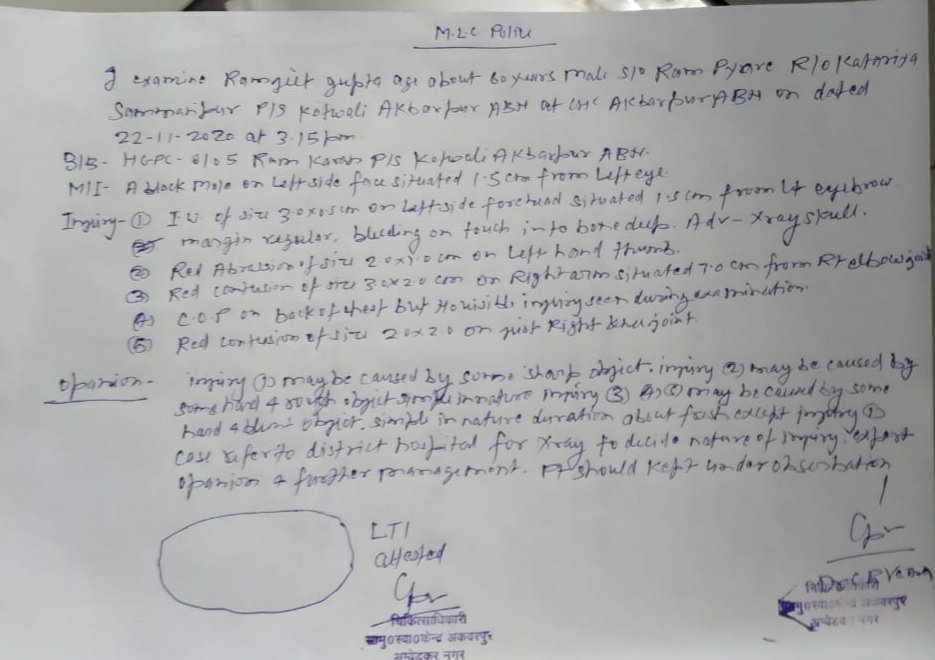 M.L.C Police
I examine Ramjiet gupta age about 60 years male S/o Ram Pyare R/o Katariya
Sammanpur P/S Kotwali Akbarpur ABN at CHC Akbarpur ABN on dated
22-11-2020 at 3.15 pm.
B/B- HGPC-0105 Ram Karan P/S Kotwali Akbarpur ABN.
MII- A black mole on Left side face situated 1.5 cm from Left eye.
Injury- ① I.W. of size 3.0x0.5 cm on Left side forehead situated 1.5 cm from Lt eyebrow
margin regular, bleeding on touch in to bone deep. Adv- xray skull.
② Red Abrasion of size 2.0x1.0 cm on Left hand thumb.
③ Red contusion of size 3.0x2.0 cm on Right arm situated 7.0 cm from Rt elbow joint
④ C.O.P on back of chest but No visible injury seen during examination.
⑤ Red contusion of size 2.0x2.0 on just Right knee joint
Opanion- injury ① may be caused by some sharp object. injury ② may be caused by
some hard & rough object simple in nature injury ③ may be caused by some
hard & blunt object. simple in nature duration about fresh except injury ①
case refer to district hospital for xray to decide nature of injury. expert
opanion & further management. Pt should kept under observation
LTI
attested
चिकित्साधिकारी
सामु०स्वा०केन्द्र अकबरपुर
अम्बेडकर नगर
Dr
चिकित्साधिकारी
सामु०स्वा०केन्द्र अकबरपुर
अम्बेडकर नगर